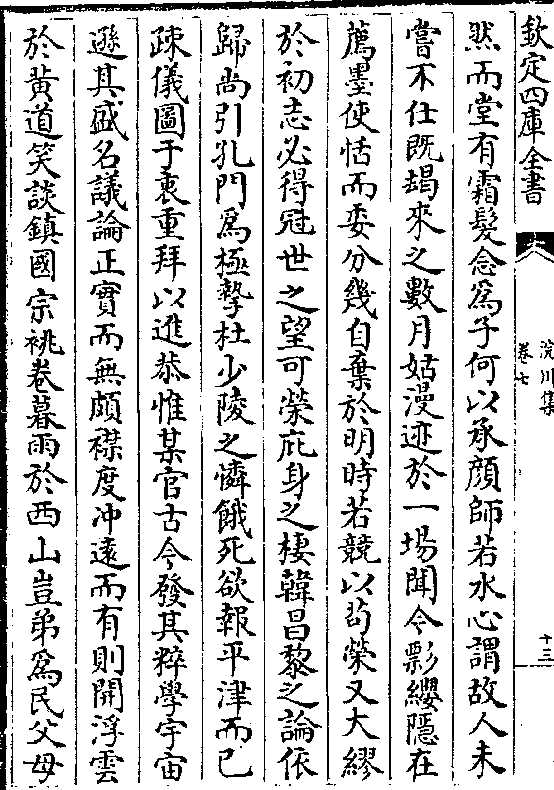 欽定四庫全書
浣川集
卷七
十三
然而堂有霜髮念爲子何以承顔師若水心謂故人未
嘗不仕既朅來之數月姑漫迹於一場聞令彯纓隱在
薦墨使恬而委分幾自棄於明時若競以茍榮又大繆
於初志必得冠世之望可榮庇身之棲韓昌黎之論依
歸尚引孔門爲極摯杜少陵之憐餓死欲報平津而已
疎儀圖于衷重拜以進恭惟某官古今發其粹學宇宙
遜其盛名議論正實而無頗襟度冲逺而有則開浮雲
於黄道笑談鎮國宗祧卷暮雨於西山豈弟爲民父母